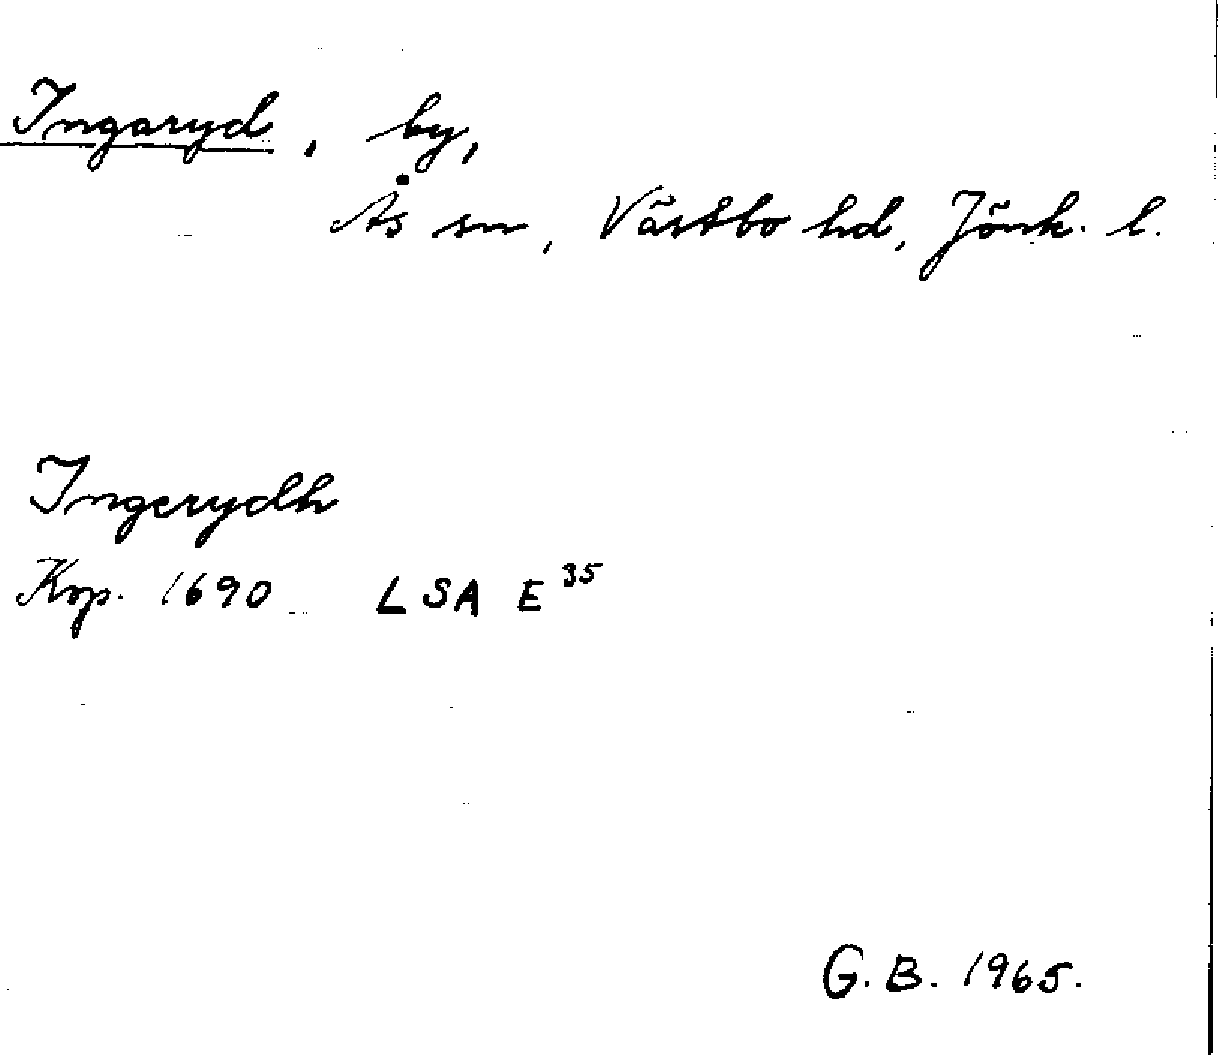 Ingaryd, by,
Ås sn, Västbo hd, Jönk. l.
Ingerydh
Kop. 1690 LSA E 35
G.B. 1965.